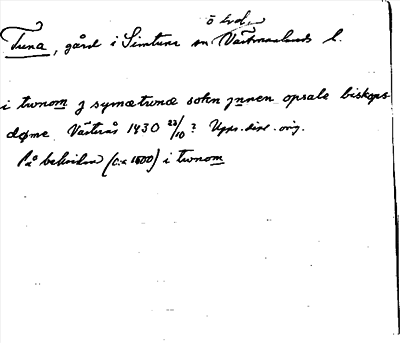 ö hvd.
Tuna, gård i Simtuna sn Västmanlands l.
i twnom j symætunæ sokn jnnen opsale biskops-
døme. Västerås 1430 23/10? Upps. div. orig.
På baksidan (c:a 1600) i twnom